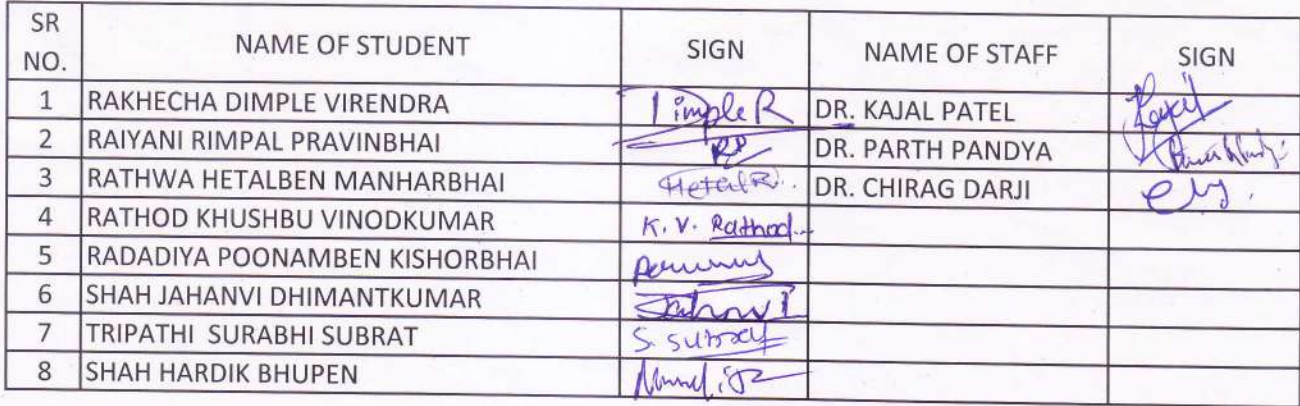 SR NO. NAME OF STUDENT SIGN NAME OF STAFF SIGN
1 RAKHECHA DIMPLE VIRENDRA Dimple R DR. KAJAL PATEL
2 RAIYANI RIMPAL PRAVINBHAI RP DR. PARTH PANDYA
3 RATHWA HETALBEN MANHARBHAI Hetal R. DR. CHIRAG DARJI
4 RATHOD KHUSHBU VINODKUMAR K. V. Rathod
5 RADADIYA POONAMBEN KISHORBHAI
6 SHAH JAHANVI DHIMANTKUMAR Jahnvi
7 TRIPATHI SURABHI SUBRAT
8 SHAH HARDIK BHUPEN